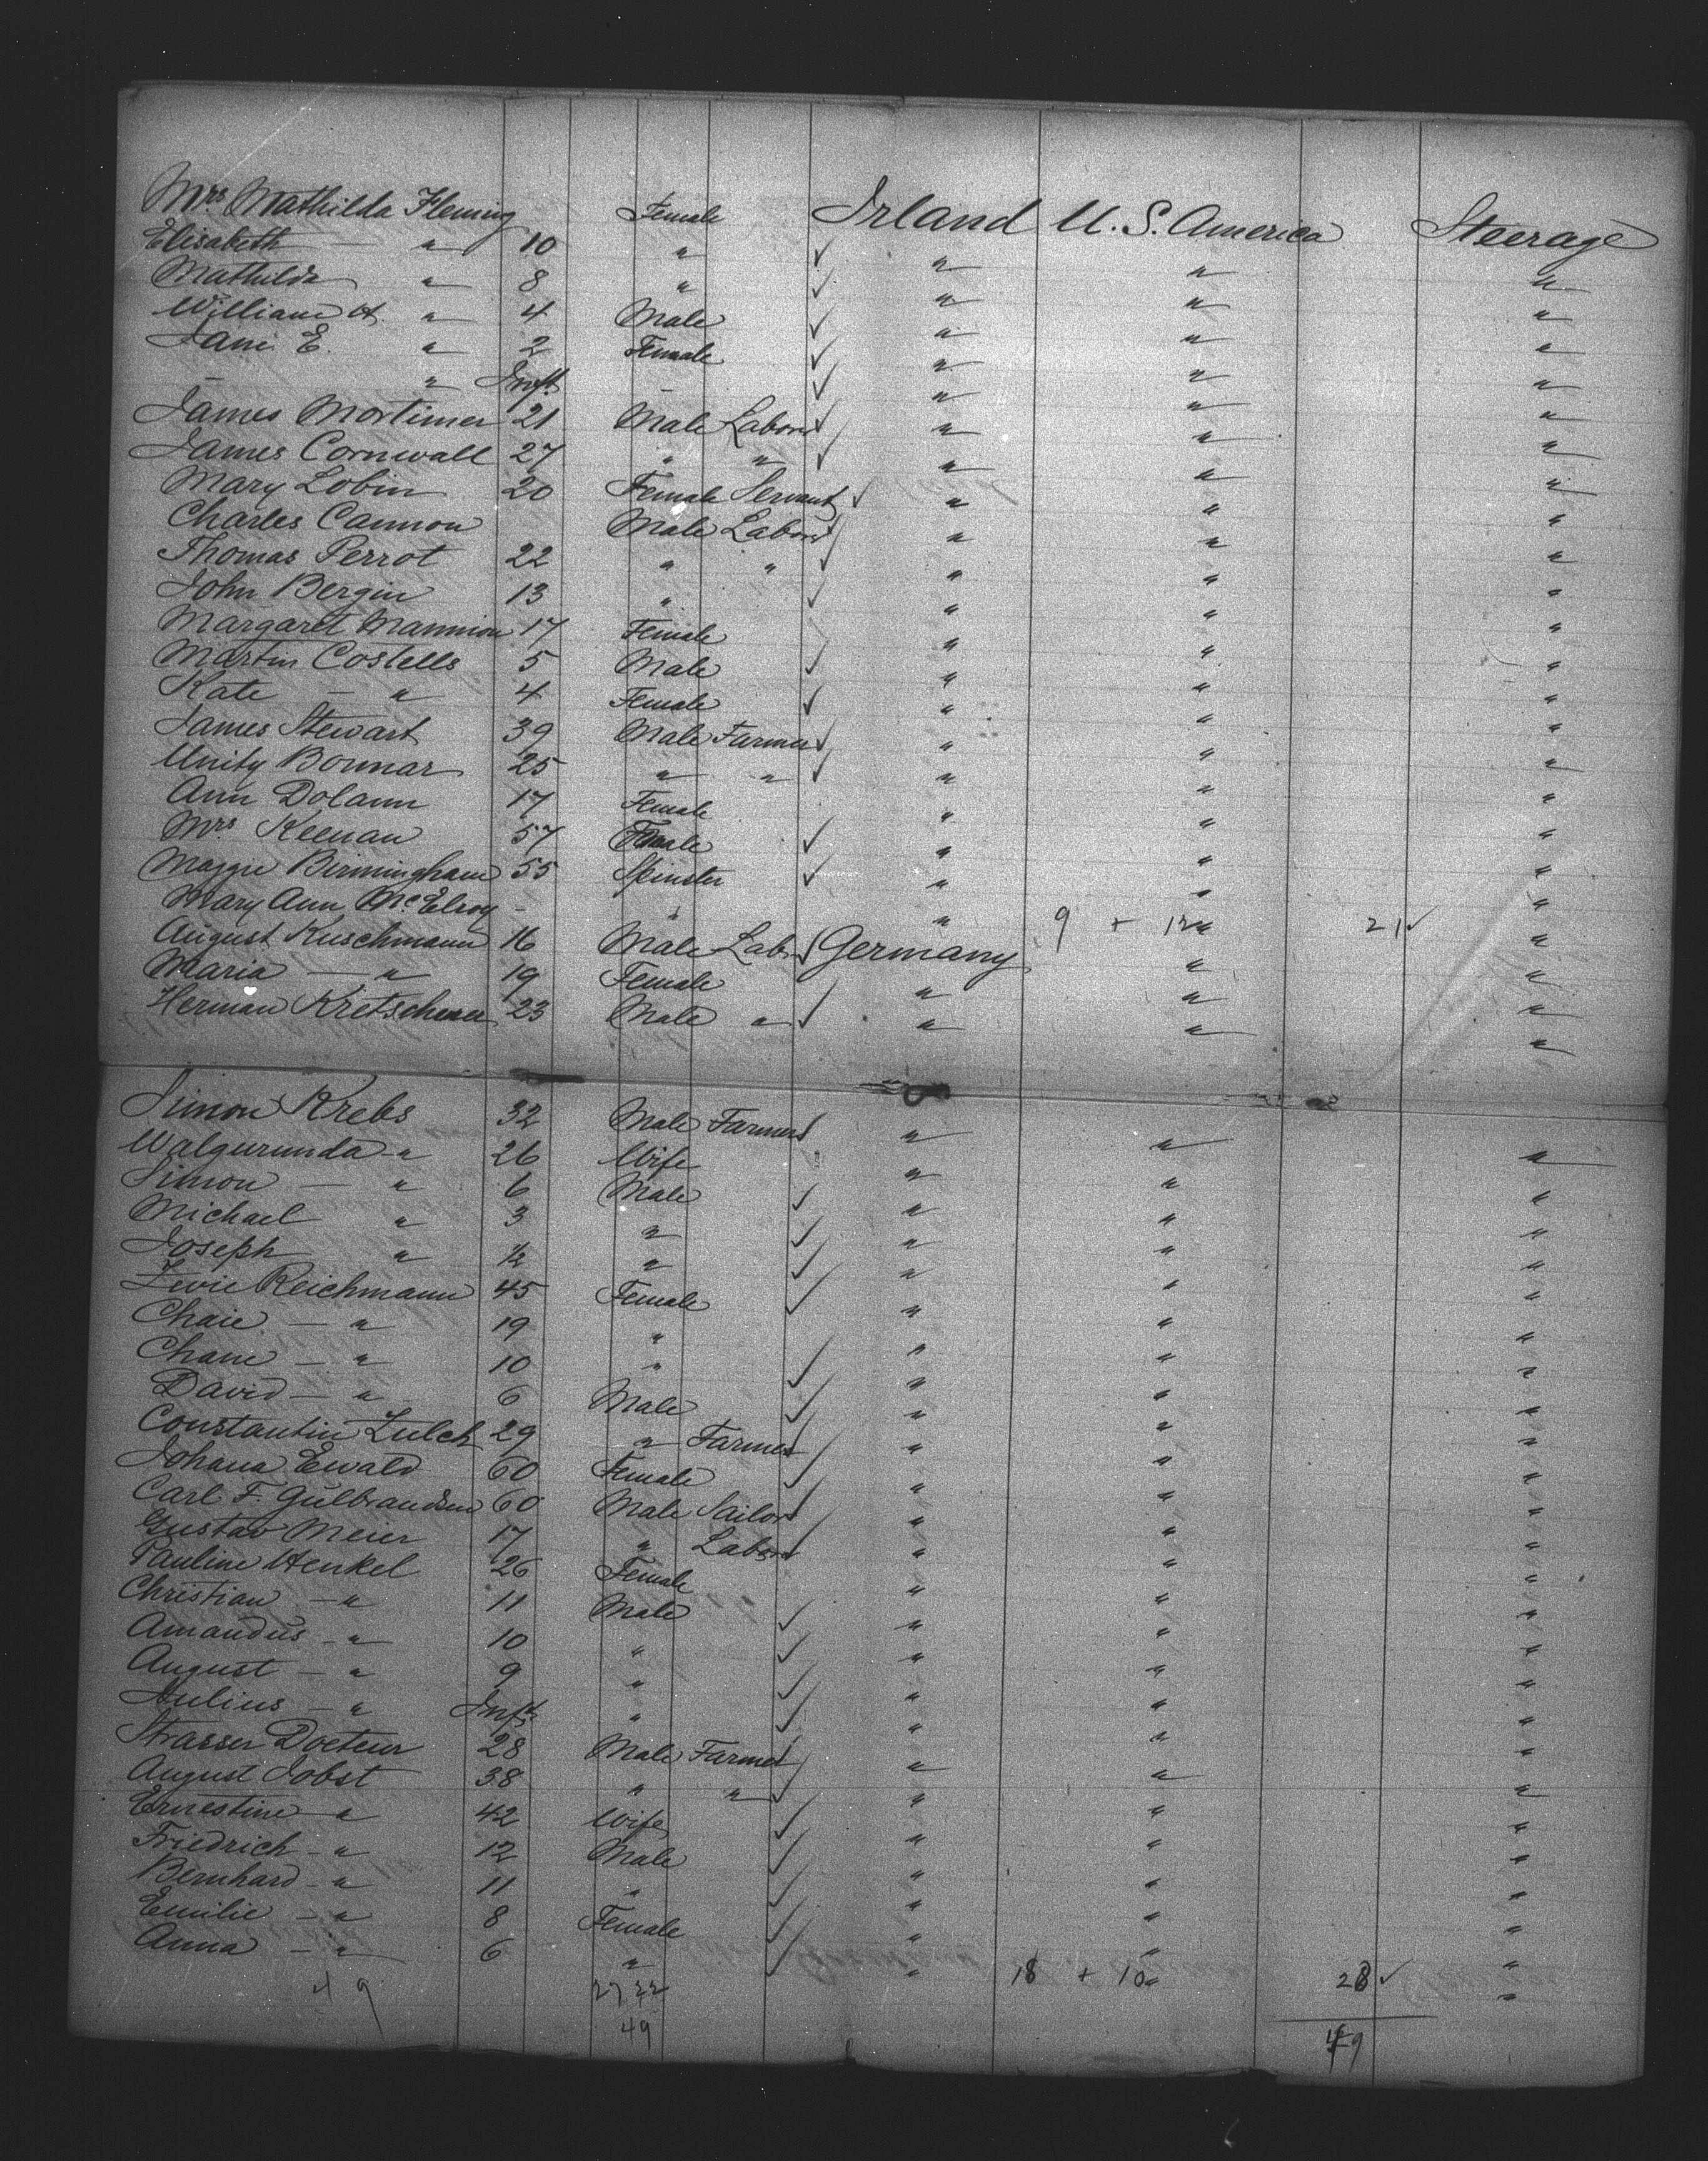 Mrs Mathilda Fleming Female Irland U. S. America Steerage
Elisabeth — " 10 " " " "
Mathilda " 8 " " " "
William H. " 4 Male " " "
Jane E. " 2 Female " " "
— " Inft — " " "
James Mortimer 21 Male Labour " " "
James Cornwall 27 " " " " "
Mary Lobin 20 Female Servant " " "
Charles Cannon Male Labour " " "
Thomas Perrot 22 " " " " "
John Bergin 13 " " " "
Margaret Mannion 17 Female " " "
Martin Costells 5 Male " " "
Kate — " 4 Female " " "
James Stewart 39 Male Farmer " " "
Unity Bonnar 25 " " " " "
Ann Dolann 17 Female " " "
Mrs Keenan 57 Female " " "
Maggie Birmingham 55 Spinster " " "
Mary Ann McElroy - " " 9 + 12 " 21 "
August Kuschmann 16 Male Labr Germany " "
Maria — " 19 Female " " "
Herman Kretschmer 23 Male " " " "
Simon Krebs 32 Male Farmer " " "
Walgurunda - " 26 Wife " " "
Simon — " 6 Male " " "
Michael " 3 " " " "
Joseph " ½ " " " "
Zwie Reichmann 45 Female " " "
Chaie — " 19 " " " "
Chane — " 10 " " " "
David — " 6 Male " " "
Constantin Zulch 29 " Farmer " " "
Johana Ewald 60 Female " " "
Carl F. Gulbrandsen 60 Male Sailor " " "
Gustav Meier 17 " Labour " " "
Pauline Henkel 26 Female " " "
Christian — " 11 Male " " "
Amandus - " 10 " " " "
August — " 9 " " " "
Julius — " Inft " " " "
Strasser Docteur 28 Male Farmer " " "
August Jobst 38 " " " " "
Ernestine " 42 Wife " " "
Friedrich - " 12 Male " " "
Bernhard - " 11 " " " "
Emilie — " 8 Female " " "
Anna — " 6 " " 18 + 10 " 28 "
49 27 22
49 49